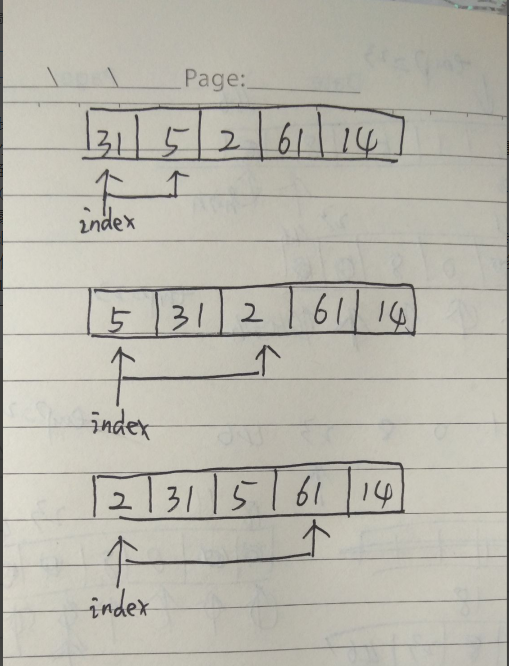 Page:
31 5 2 61 14
index
5 31 2 61 14
index
2 31 5 61 14
index